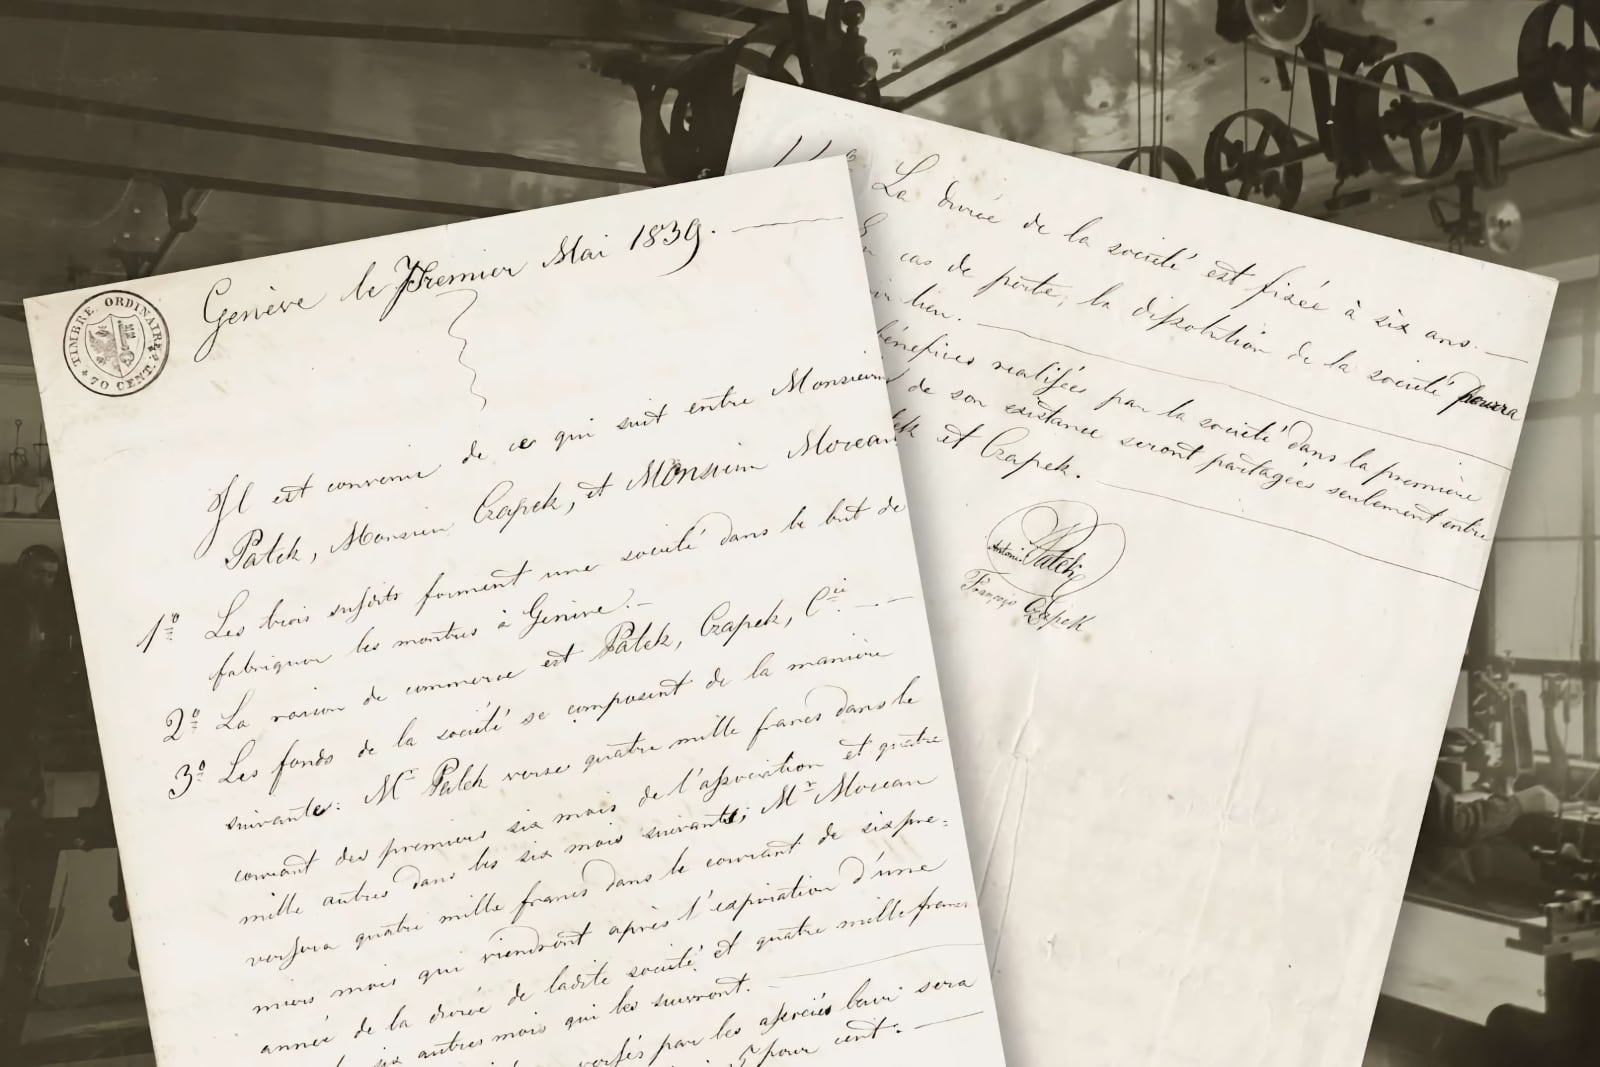 Genève le Premier Mai 1839.
TIMBRE ORDINAIRE
70 CENT.
Il est convenu de ce qui suit entre Monsieur
Patek, Monsieur Czapek, et Monsieur Moreau
1º Les trois susdits forment une société dans le but de
fabriquer les montres à Genève.
2º La raison de commerce est Patek, Czapek, Cie
3º Les fonds de la société se composent de la manière
suivante: Mr Patek verse quatre mille francs dans le
courant des premiers six mois de l'association et quatre
mille autres dans les six mois suivants; Mr Moreau
versera quatre mille francs dans le courant de six pre=
miers mois qui viendront après l'expiration d'une
année de la durée de ladite société et quatre mille francs
six autres mois qui les suivront.
versés par les associés leur sera
5 pour cent.
La durée de la société est fixée à six ans.
cas de perte, la dissolution de la société pourra
lieu.
bénéfices réalisés par la société dans la première
de son existance seront partagées seulement entre
et Czapek.
Antoni Patek
François Czapek